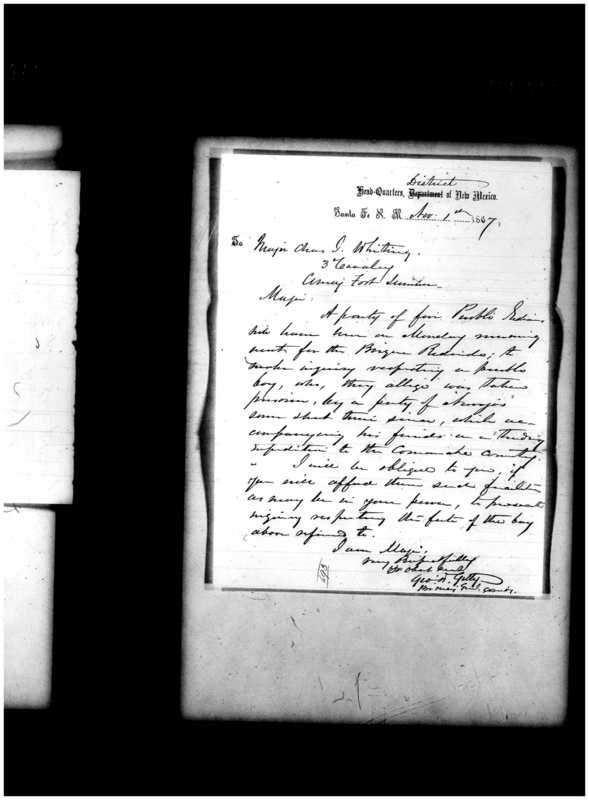 District
Head-Quarters, Department of New Mexico.
Santa Fe N. M. Nov. 1st 1867,
To Major Chas J. Whiting.
3d Cavalry
Comdg Fort Sumner
Major:
A party of five Pueblo Indians
will leave here on Monday morning
next for the Bosque Redondo, to
make inquiry respecting a pueblo
boy, who, they allege was taken
prisoner, by a party of Navajos
some short time since, while ac-
companying his friends on a trading
expedition to the Comanche country.
I will be obliged to you, if
you will afford them such facilities
as may be in your power, to prosecute
inquiry respecting the fate of the boy
above referred to.
I am Major,
Very Respectfully
Yr Obdt Servt
Geo. W. Getty
Bv Maj Genl. Comdg.